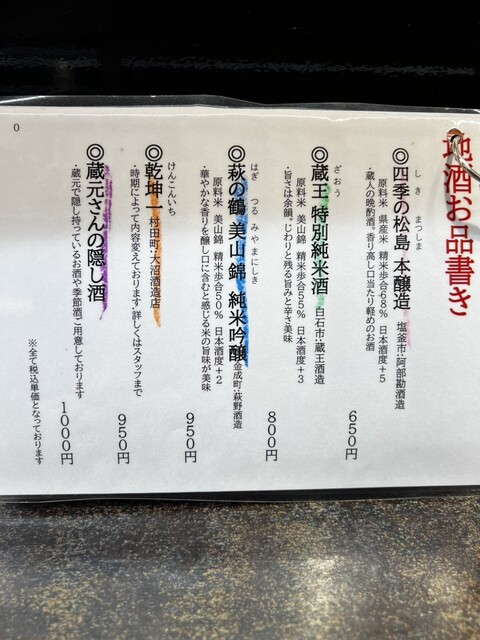 地酒お品書き
しき まつしま
◎四季の松島 本醸造 塩釜市:阿部勘酒造
原料米 県産米 精米歩合68% 日本酒度+5
・蔵人の晩酌酒。香り高し口当たり軽めのお酒
650円
ざおう
◎蔵王 特別純米酒 白石市:蔵王酒造
原料米 美山錦 精米歩合55% 日本酒度+3
・旨さは余韻。じわりと残る旨みと辛さ美味
800円
はぎ つる みやまにしき
◎萩の鶴 美山錦 純米吟醸 金成町:萩野酒造
原料米 美山錦 精米歩合50% 日本酒度+2
・華やかな香りを醸し口に含むと感じる米の旨味が美味
950円
けんこんいち
◎乾坤一 村田町:大沼酒造店
・時期によって内容変えております。詳しくはスタッフまで
950円
◎蔵元さんの隠し酒
・蔵元で隠し持っているお酒や季節酒ご用意しております
1000円
※全て税込単価となっております
0